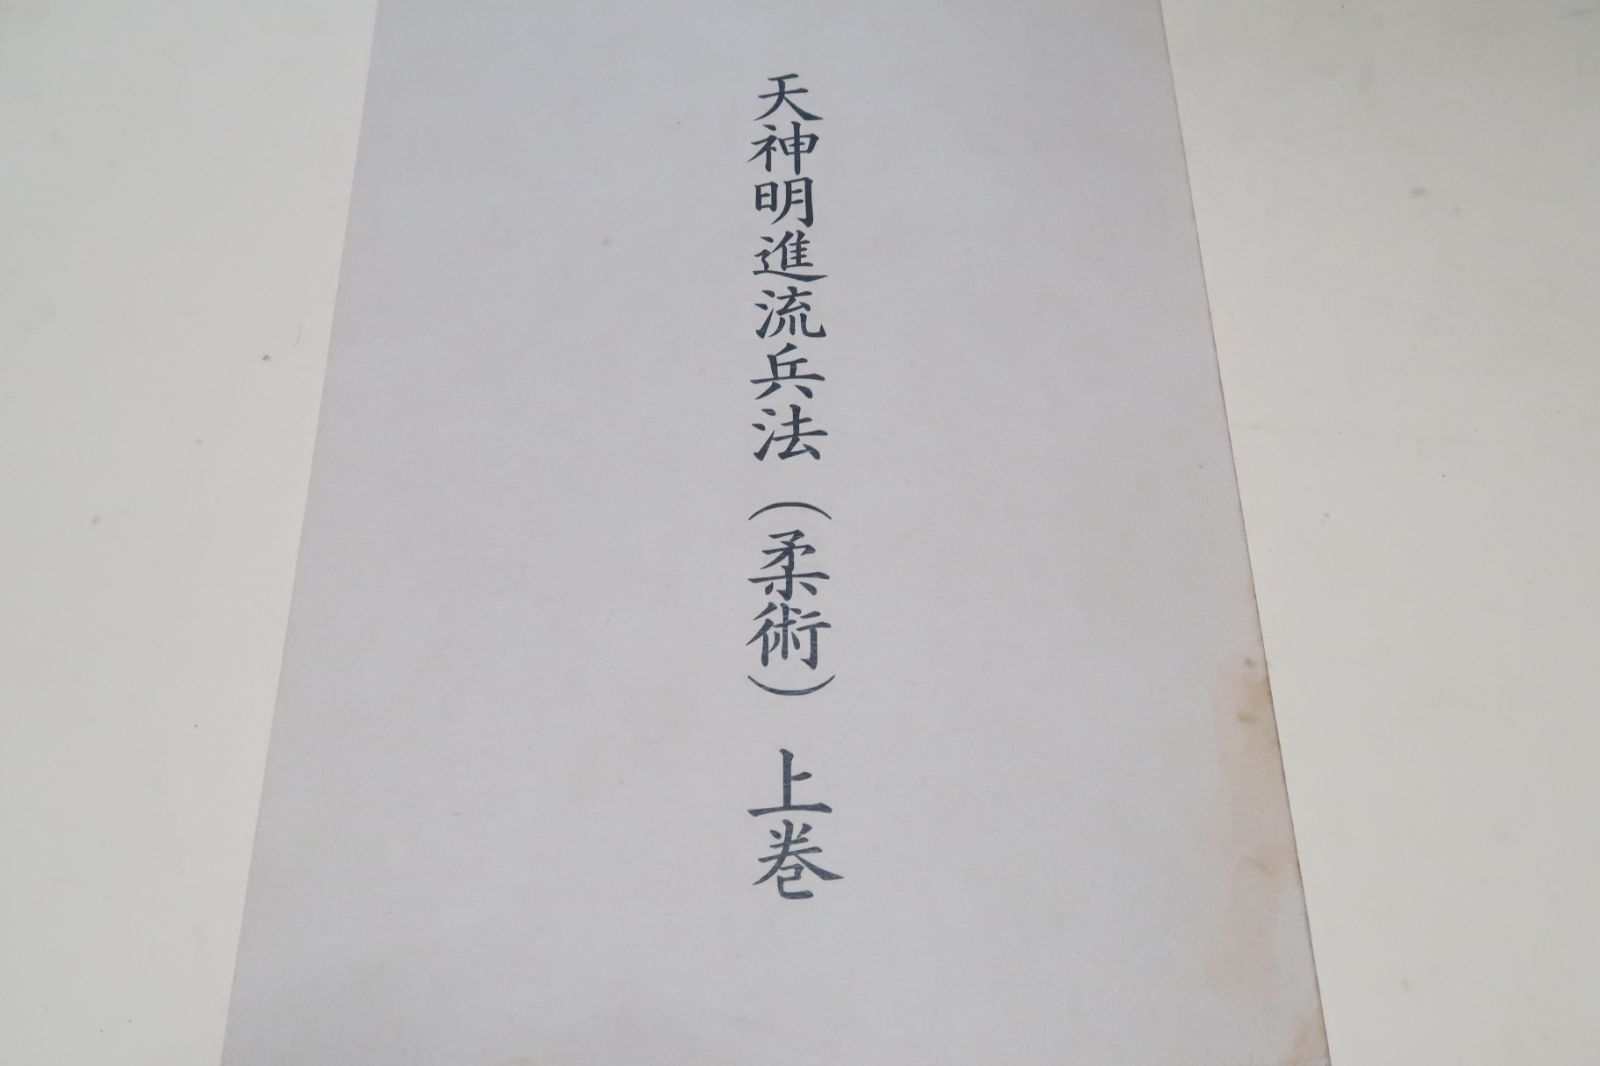 天神明進流兵法（柔術）上巻